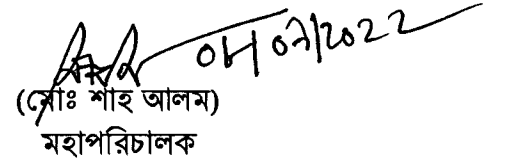 04/07/2022
(মোঃ শাহ আলম)
মহাপরিচালক